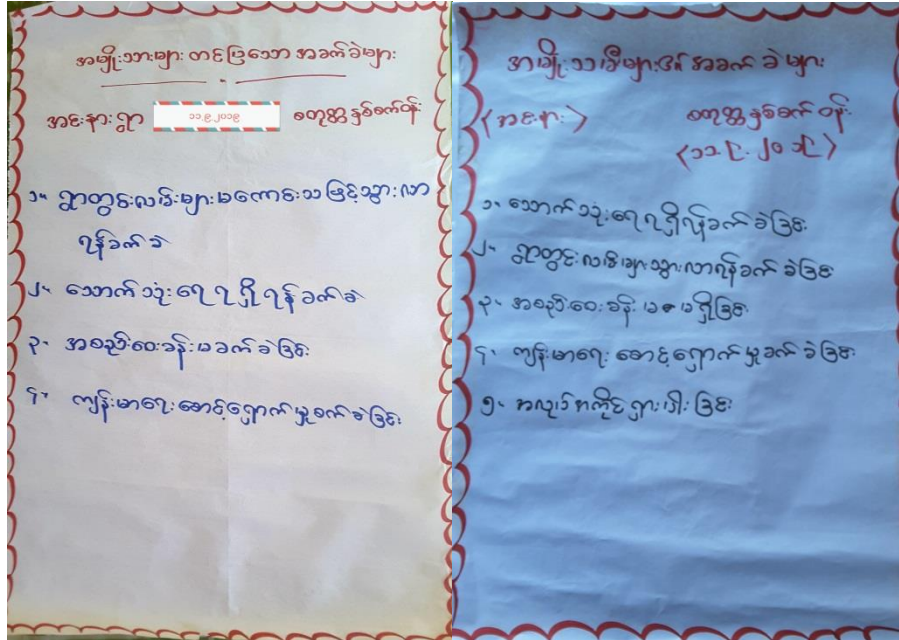 အမျိုးသားများ တင်ပြသော အခက်ခဲများ
အင်းနားရွာ ၁၁.၉.၂၀၁၉ စတုတ္ထနှစ်စက်ဝန်း
၁။ ရွာတွင်းလမ်းများမကောင်းသဖြင့်သွားလာ
ရန်ခက်ခဲ
၂။ သောက်သုံးရေရရှိရန်ခက်ခဲ
၃။ အစည်းဝေးခန်းမခက်ခဲခြင်း
၄။ ကျန်းမာရေးစောင့်ရှောက်မှုခက်ခဲခြင်း
အမျိုးသမီးများ၏ အခက်ခဲများ
(အင်းနား) စတုတ္ထနှစ်စက်ဝန်း
(၁၁.၉.၂၀၁၉)
၁. သောက်သုံးရေရရှိရန်ခက်ခဲခြင်း
၂. ရွာတွင်းလမ်းများသွားလာရန်ခက်ခဲခြင်း
၃. အစည်းဝေးခန်းမ မရှိခြင်း
၄. ကျန်းမာရေးစောင့်ရှောက်မှုခက်ခဲခြင်း
၅. အလုပ်အကိုင်ရှားပါးခြင်း